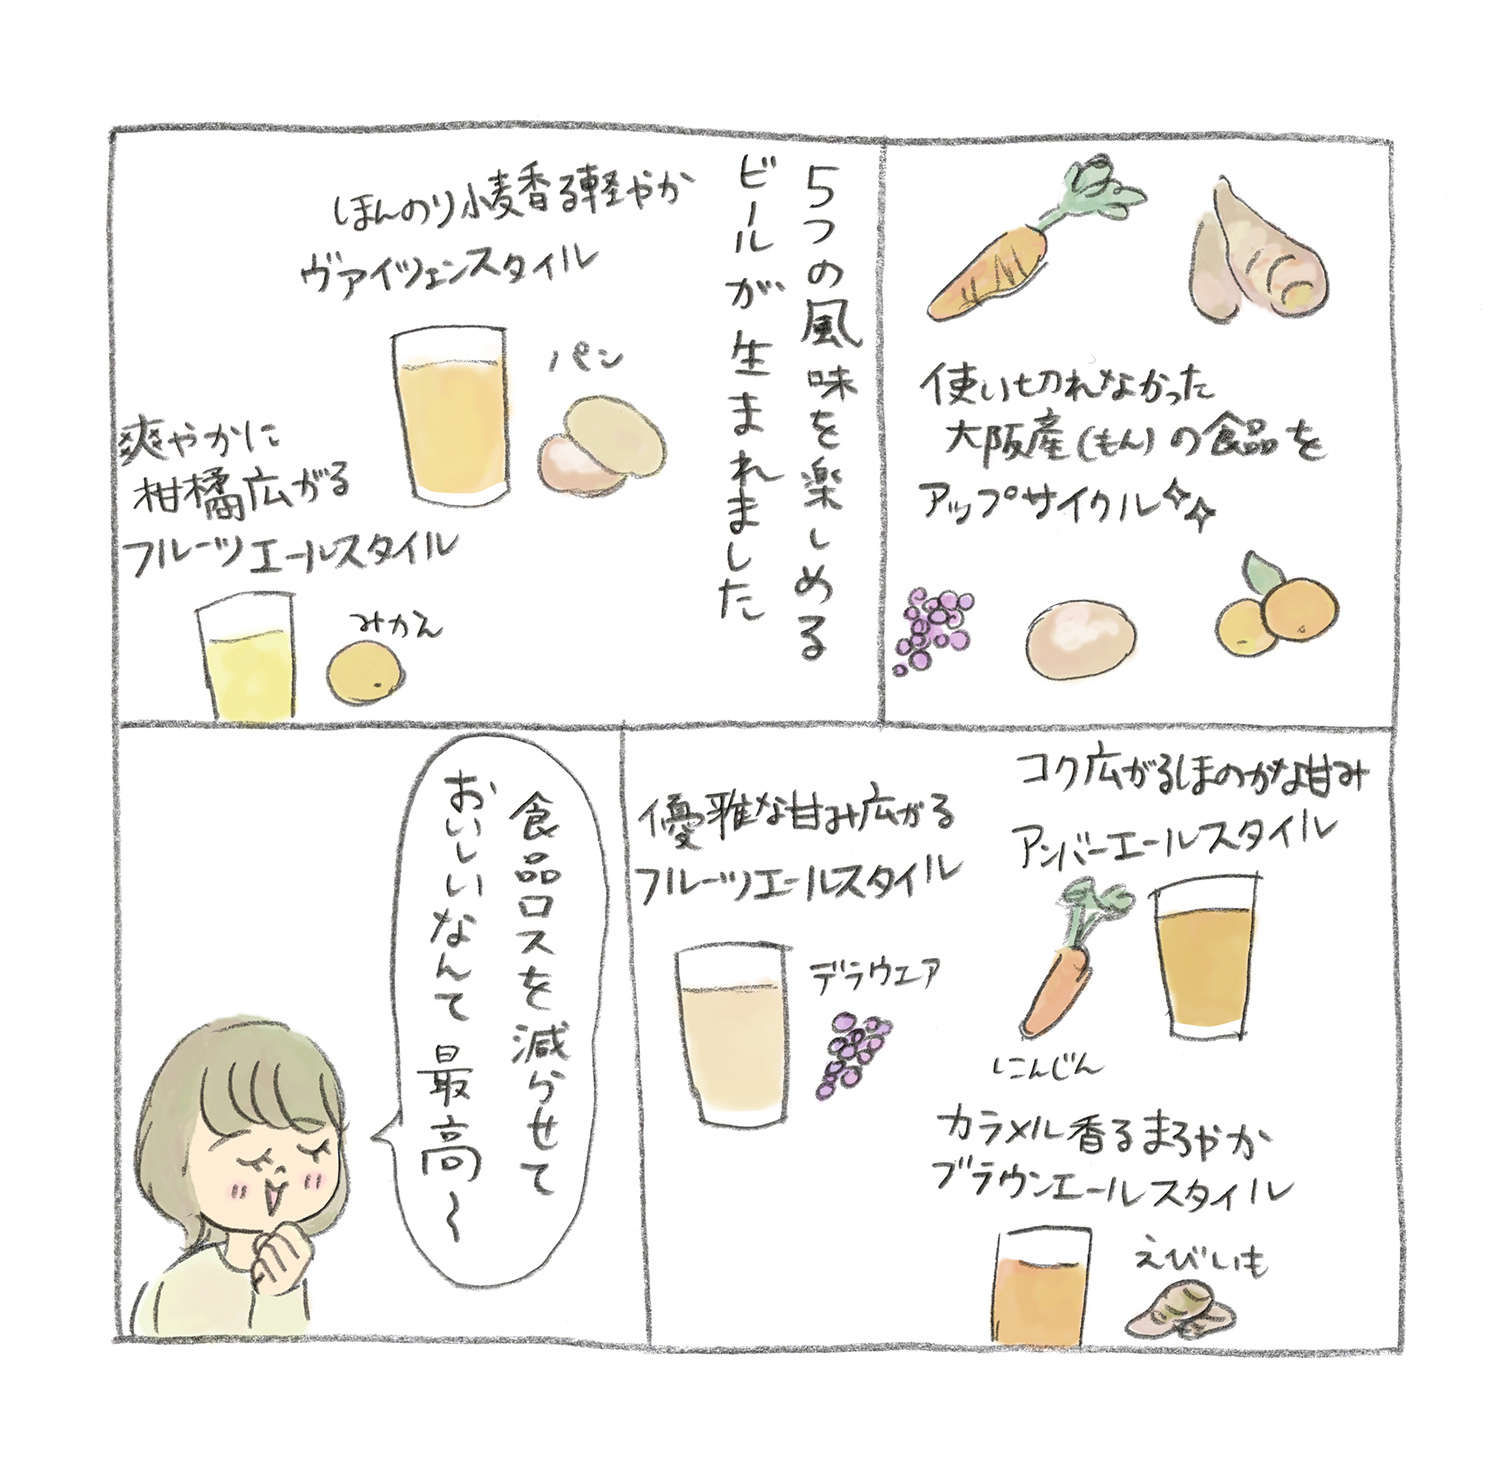 使い切れなかった
大阪産(もん)の食品を
アップサイクル
5つの風味を楽しめる
ビールが生まれました
ほんのり小麦香る軽やか
ヴァイツェンスタイル
パン
爽やかに
柑橘広がる
フルーツエールスタイル
みかん
コク広がるほのかな甘み
アンバーエールスタイル
にんじん
優雅な甘み広がる
フルーツエールスタイル
デラウェア
カラメル香るまろやか
ブラウンエールスタイル
えびいも
食品ロスを減らせて
おいしいなんて 最高〜